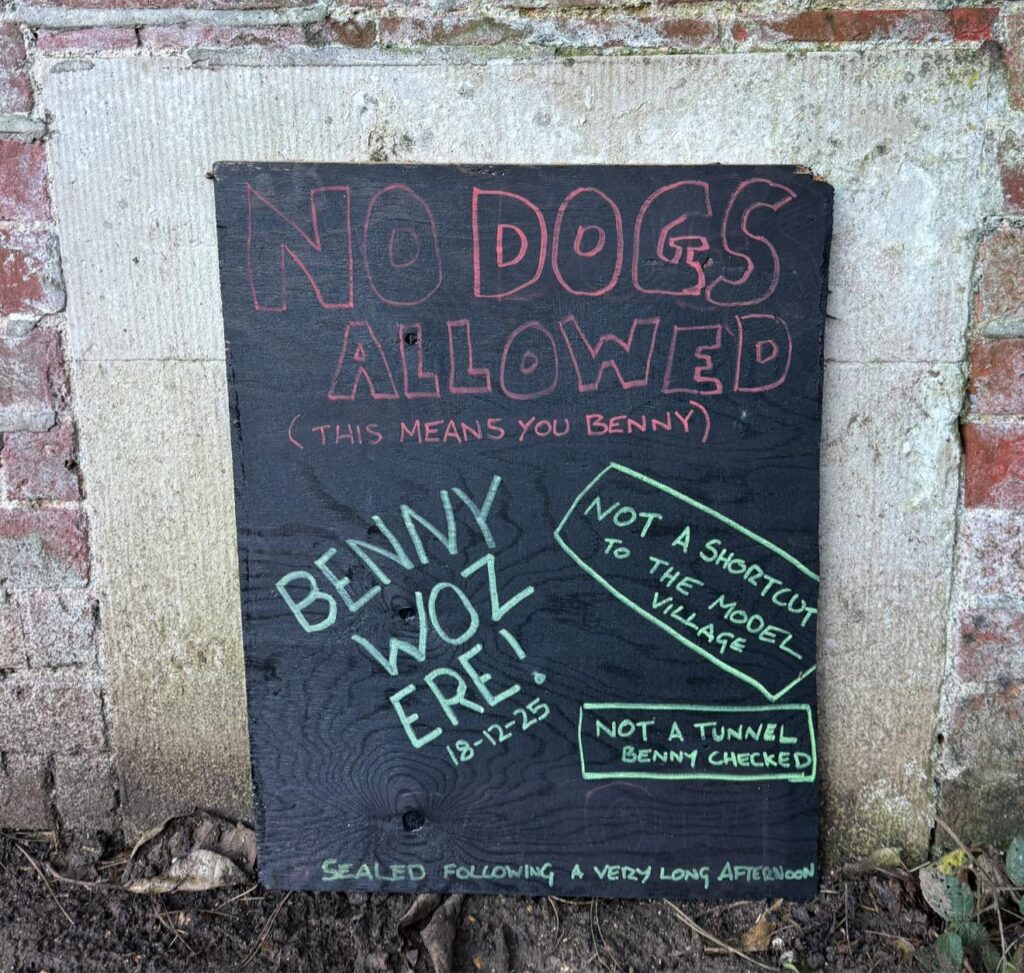 NO DOGS
ALLOWED
(THIS MEANS YOU BENNY)
BENNY
WOZ
ERE!
18-12-25
NOT A SHORTCUT
TO THE MODEL
VILLAGE
NOT A TUNNEL
BENNY CHECKED
SEALED FOLLOWING A VERY LONG AFTERNOON